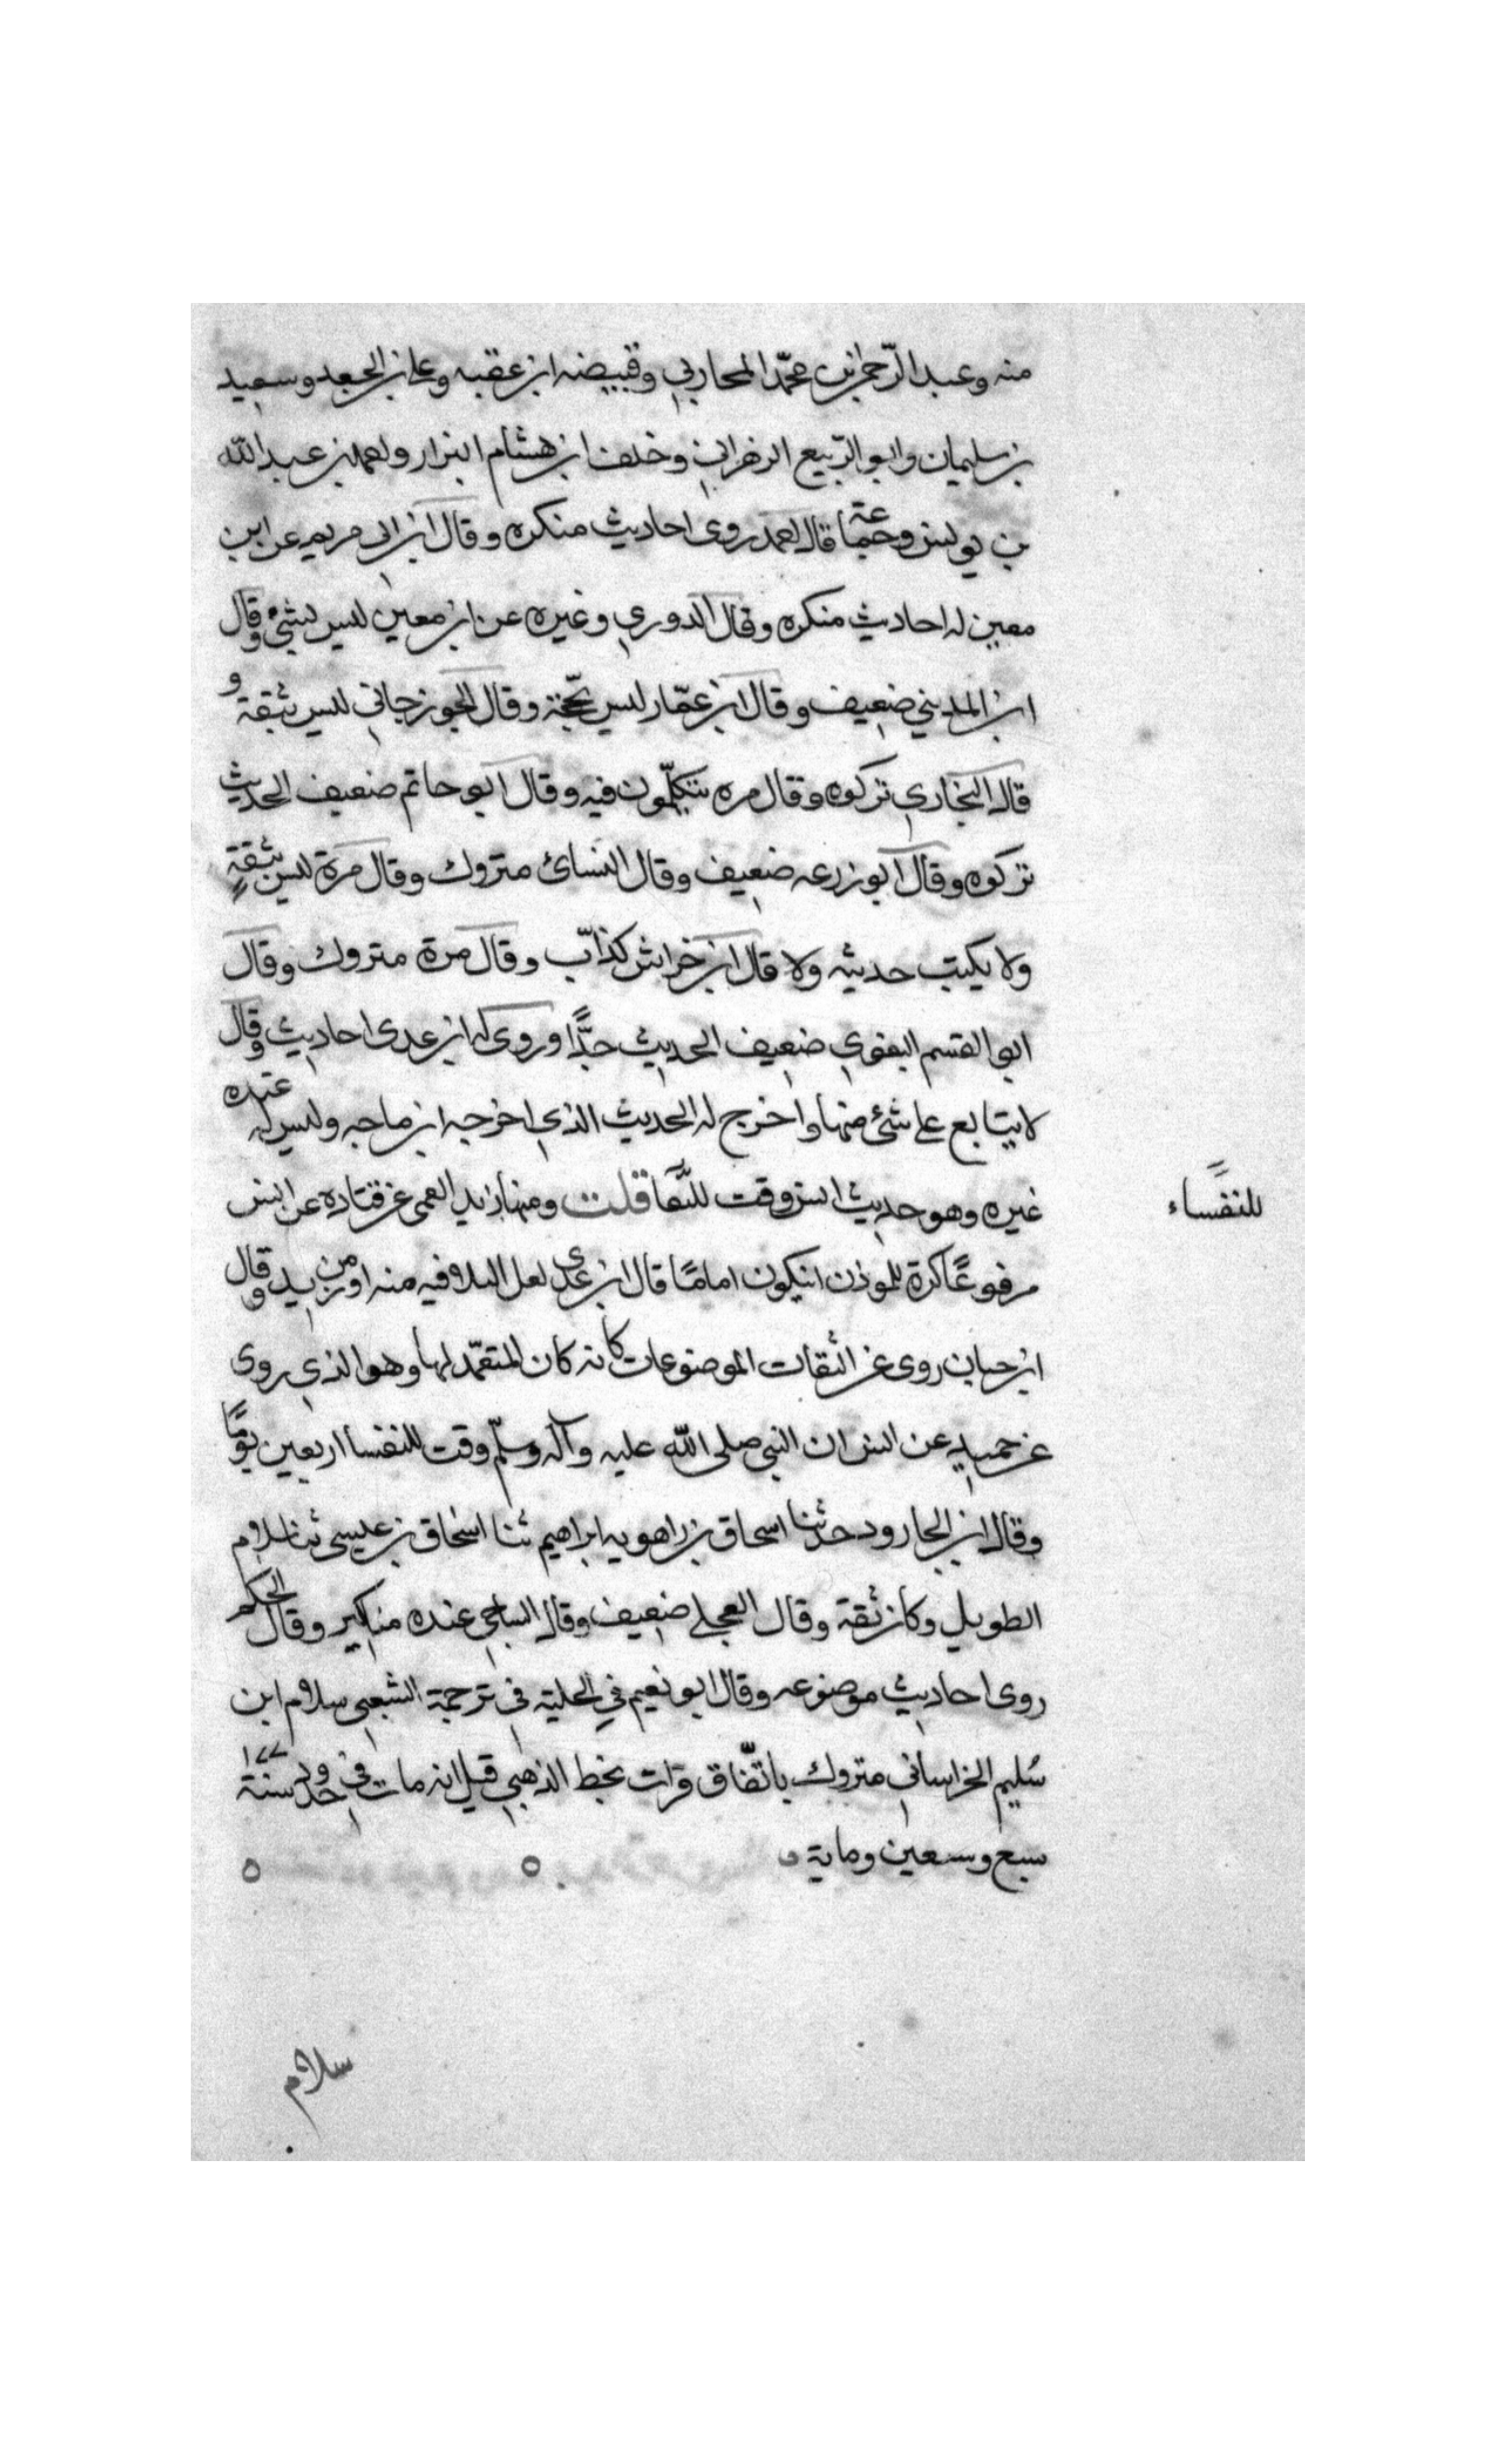 منه وعبد الرّحمن بن محمّد المحاربي وقبيصه ابن عقبه وعلى بن الجعد وسعيد
بن سليمان وابو الرّبيع الزهراني وخلف ابن هشام البزار واحمد بن عبد الله
بن يونس وجماعة قال احمد روى احاديث منكره وقال ابن ابى مريم عن ابن
معين له احاديث منكره وقال الدوري وغيره عن ابن معين ليس بشئ وقال
ابن المديني ضعيف وقال ابن عمّار ليس بحّجة وقال الجوزجاني ليس بثقة و
قال البخاري تركوه وقال مره يتكلّمون فيه وقال ابو حاتم ضعيف الحديث
تركوه وقال ابو زرعه ضعيف وقال النسائ متروك وقال مرة ليس بثقةٍ
ولا يكتب حديثه ولا قال ابن خراش كذابّ وقال مرة متروك وقال
ابو القسم البغوي ضعيف الحديث جدًّا وروى له ابن عدى احاديث وقال
لا يتابع على شئ منها واخرج له الحديث الذي اخرجه ابن ماجه وليس له عنده
غيره وهو حديث انس وقت للنّفسا قلت ومنها زيد العمى عن قتاده عن انس
للنفساء
مرفوعًا كره للموذن ان يكون امامًا قال ابن عدى لعل البلا فيه منه او من زيد وقال
ابن حبان روى عن الثقات الموضوعات كانه كان المتعمّد لها وهو الذي روى
عن حميد عن انس ان النبى صلى الله عليه وآله وسلّم وقت للنفسا اربعين يومًا
وقال ابن الجارود حدثنا اسحاق بن راهويه ابراهيم ثنا اسحاق بن عيسى ثنا سلام
الطويل وكان ثقة وقال العجلى ضعيف وقال الساجى عنده مناكير وقال الحاكم
روى احاديث موضوعه وقال ابو نعيم في الحلية فى ترجمة الشعبى سلام ابن
سُليم الخراسانى متروك باتّفاق قرات بخط الذهبي قيل انه مات فى حدود سنة ١٧٧
سبع وسبعين وماية
سلام